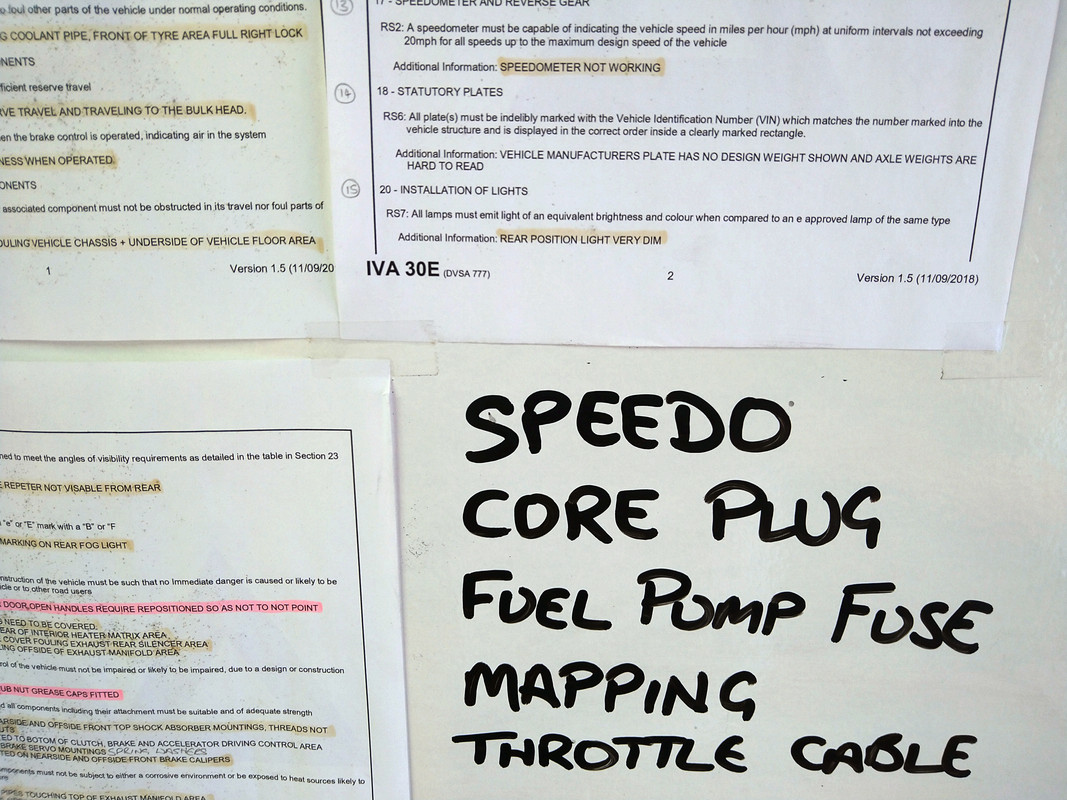 foul other parts of the vehicle under normal operating conditions.
G COOLANT PIPE, FRONT OF TYRE AREA FULL RIGHT LOCK
NENTS
ficient reserve travel
VE TRAVEL AND TRAVELING TO THE BULK HEAD.
en the brake control is operated, indicating air in the system
NESS WHEN OPERATED.
ONENTS
associated component must not be obstructed in its travel nor foul parts of
OULING VEHICLE CHASSIS + UNDERSIDE OF VEHICLE FLOOR AREA
1
Version 1.5 (11/09/20
13
17 - SPEEDOMETER AND REVERSE GEAR
RS2: A speedometer must be capable of indicating the vehicle speed in miles per hour (mph) at uniform intervals not exceeding
20mph for all speeds up to the maximum design speed of the vehicle
Additional Information: SPEEDOMETER NOT WORKING
14
18 - STATUTORY PLATES
RS6: All plate(s) must be indelibly marked with the Vehicle Identification Number (VIN) which matches the number marked into the
vehicle structure and is displayed in the correct order inside a clearly marked rectangle.
Additional Information: VEHICLE MANUFACTURERS PLATE HAS NO DESIGN WEIGHT SHOWN AND AXLE WEIGHTS ARE
HARD TO READ
15
20 - INSTALLATION OF LIGHTS
RS7: All lamps must emit light of an equivalent brightness and colour when compared to an e approved lamp of the same type
Additional Information: REAR POSITION LIGHT VERY DIM
IVA 30E (DVSA 777)
2
Version 1.5 (11/09/2018)
ned to meet the angles of visibility requirements as detailed in the table in Section 23
E REPETER NOT VISABLE FROM REAR
"e" or "E" mark with a "B" or "F
MARKING ON REAR FOG LIGHT
nstruction of the vehicle must be such that no Immediate danger is caused or likely to be
icle or to other road users
DOOR OPEN HANDLES REQUIRE REPOSITIONED SO AS NOT TO NOT POINT
S NEED TO BE COVERED.
EAR OF INTERIOR HEATER MATRIX AREA
COVER FOULING EXHAUST REAR SILENCER AREA
LING OFFSIDE OF EXHAUST MANIFOLD AREA
rol of the vehicle must not be impaired or likely to be impaired, due to a design or construction
UB NUT GREASE CAPS FITTED
d all components including their attachment must be suitable and of adequate strength
ARSIDE AND OFFSIDE FRONT TOP SHOCK ABSORBER MOUNTINGS, THREADS NOT
UTS
TED TO BOTOM OF CLUTCH, BRAKE AND ACCELERATOR DRIVING CONTROL AREA
BRAKE SERVO MOUNTINGS SPRING WASHERS
TED ON NEARSIDE AND OFFSIDE FRONT BRAKE CALIPERS
omponents must not be subject to either a corrosive environment or be exposed to heat sources likely to
PIPES TOUCHING TOP OF EXHAUST MANIFOLD AREA
SPEEDO
CORE PLUG
FUEL PUMP FUSE
MAPPING
THROTTLE CABLE